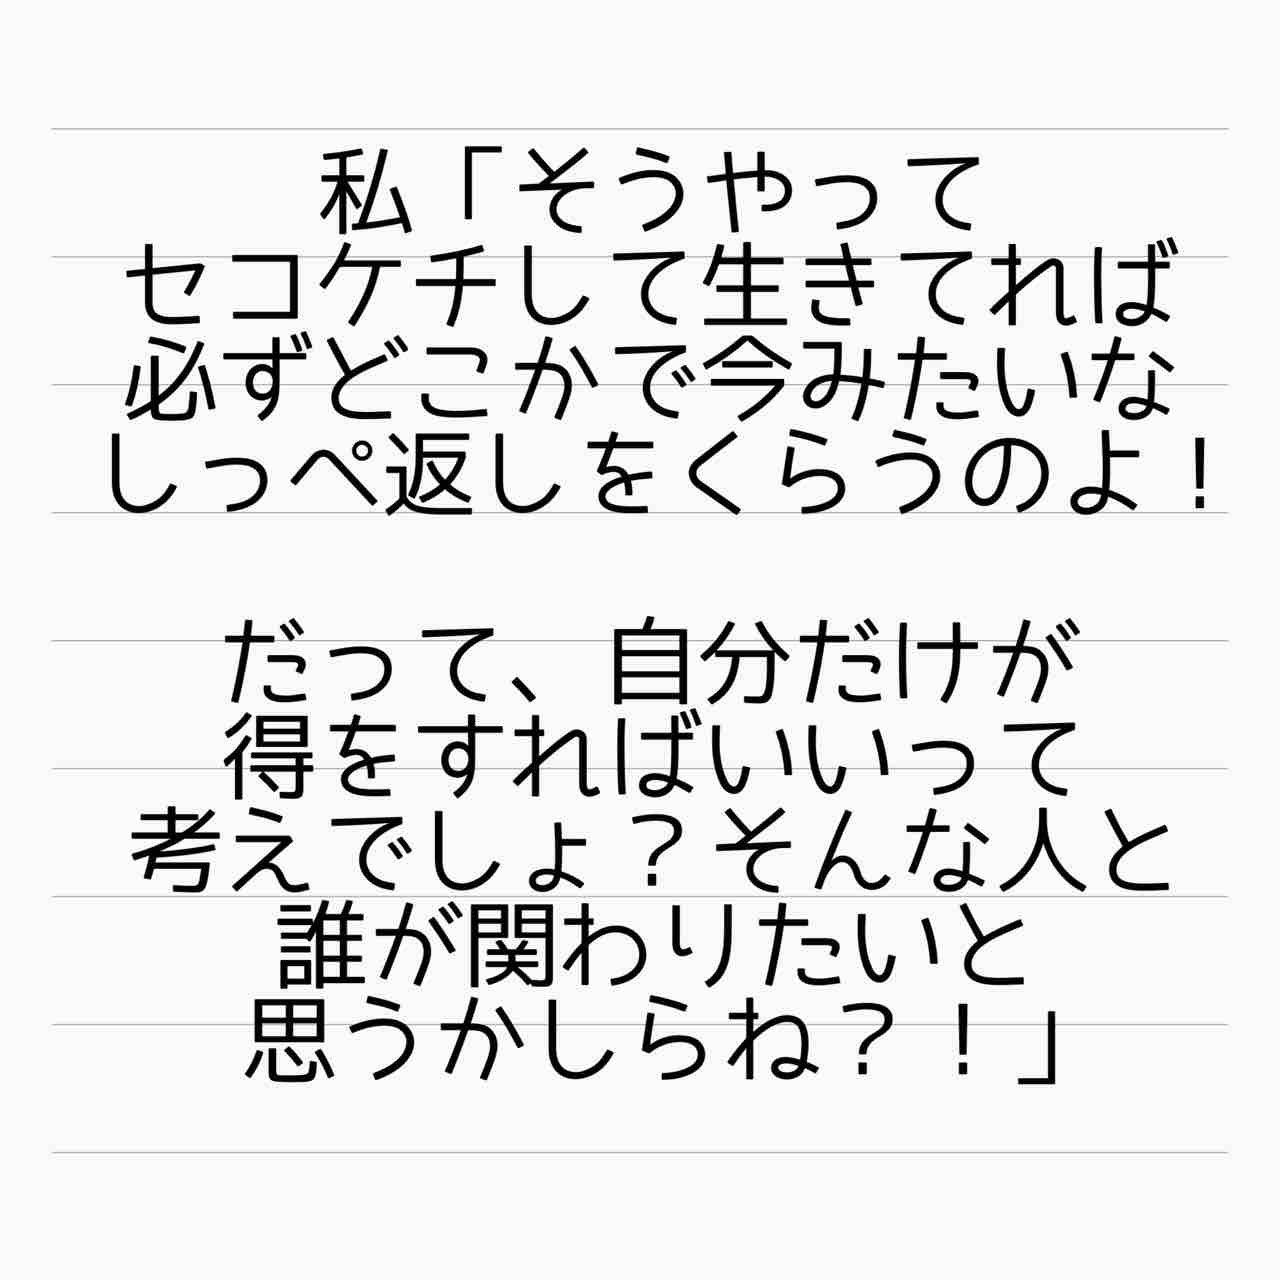 私「そうやって
セコケチして生きてれば
必ずどこかで今みたいな
しっぺ返しをくらうのよ！
だって、自分だけが
得をすればいいって
考えでしょ？そんな人と
誰が関わりたいと
思うかしらね？！」